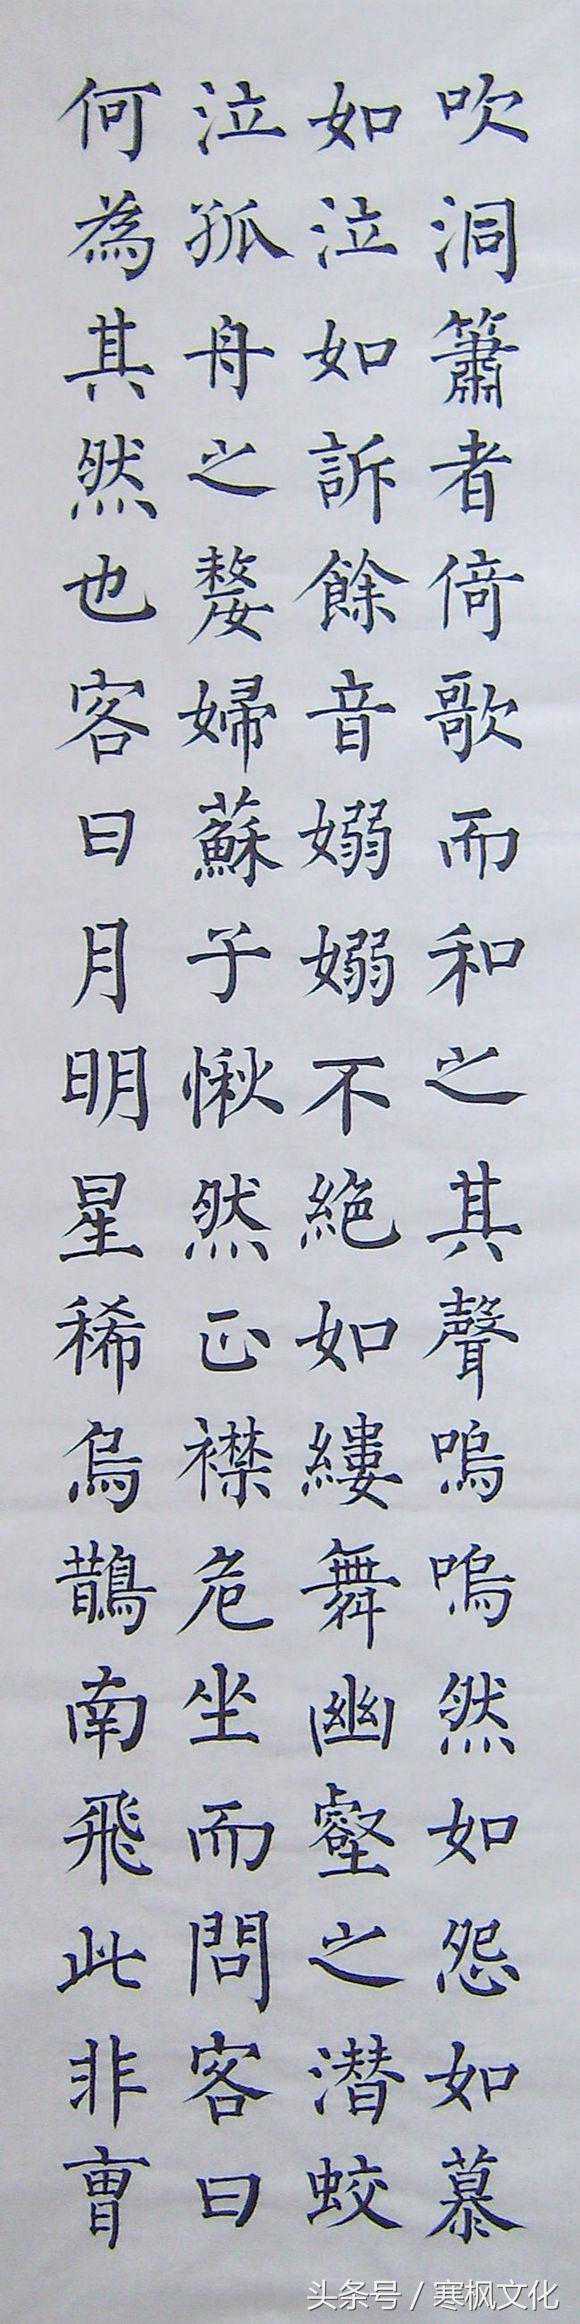 吹洞簫者倚歌而和之其聲嗚嗚然如怨如慕
如泣如訴餘音嫋嫋不絕如縷舞幽壑之潜蛟
泣孤舟之嫠婦蘇子愀然正襟危坐而問客曰
何為其然也客曰月明星稀烏鵲南飛此非曹
头条号 / 寒枫文化